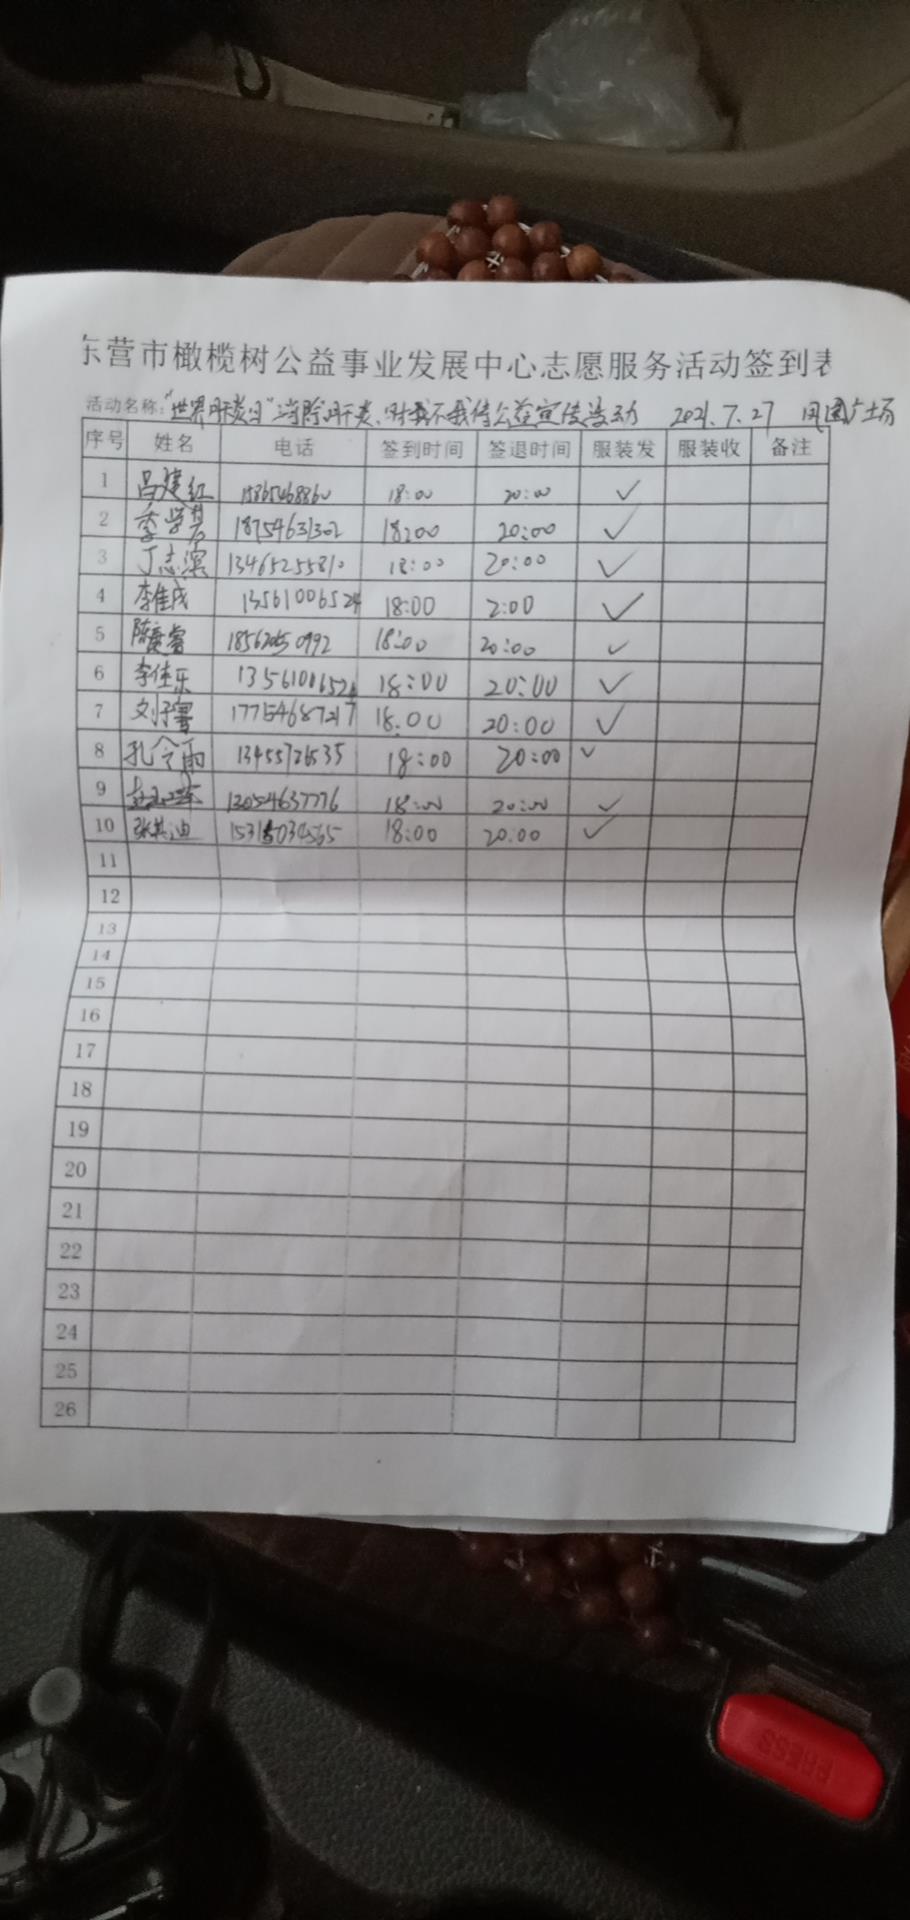 东营市橄榄树公益事业发展中心志愿服务活动签到表
活动名称："世界肝炎日"消除肝炎,时我不我待公益宣传活动 2021.7.27 凤圆广场
序号 姓名 电话 签到时间 签退时间 服装发 服装收 备注
1 吕建红 15865468860 18:00 20:00 ✓
2 季学君 18754631302 18:00 20:00 ✓
3 丁志滨 13465255810 18:00 20:00 ✓
4 李佳成 13561006524 18:00 2:00 ✓
5 陈康睿 18562050992 18:00 20:00 ✓
6 李佳乐 13561006524 18:00 20:00 ✓
7 刘子墨 17754687217 18:00 20:00 ✓
8 孔令雨 13455726535 18:00 20:00 ✓
9 13054637776 18:00 20:00 ✓
10 张其迪 15315034565 18:00 20:00 ✓
11
12
13
14
15
16
17
18
19
20
21
22
23
24
25
26
PRESS